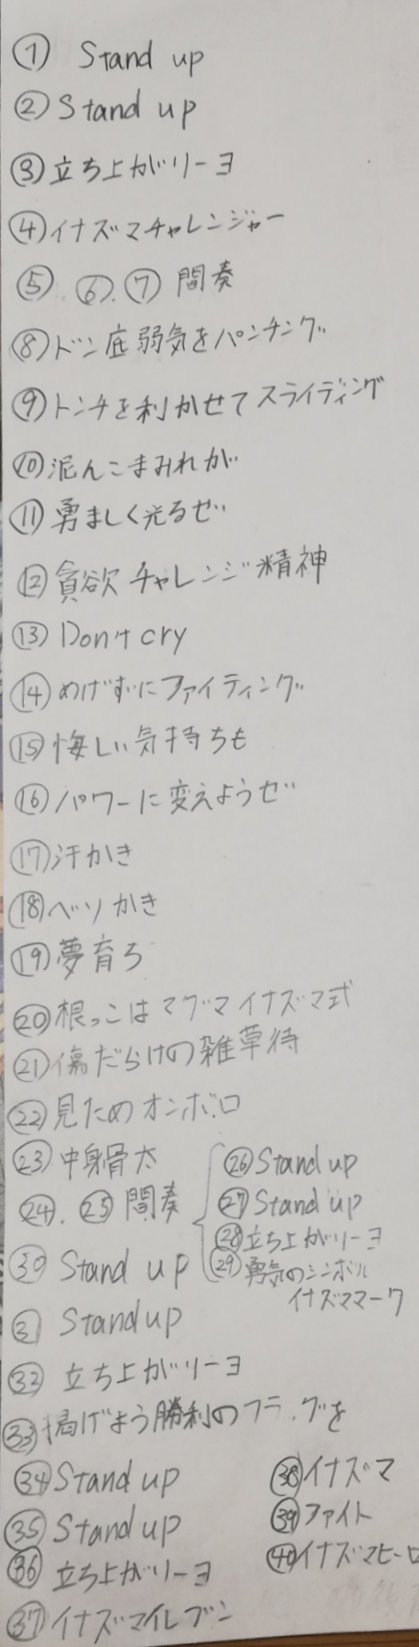 ① Stand up
② Stand up
③ 立ち上がリーヨ
④ イナズマチャレンジャー
⑤.⑥.⑦ 間奏
⑧ ドン底弱気をパンチング
⑨ トンチを利かせてスライディング
⑩ 泥んこまみれが
⑪ 勇ましく光るぜ
⑫ 貪欲チャレンジ精神
⑬ Don't cry
⑭ めげずにファイティング
⑮ 悔しい気持ちも
⑯ パワーに変えようぜ
⑰ 汗かき
⑱ ベソかき
⑲ 夢育ろ
⑳ 根っこはマグマイナズマ式
㉑ 傷だらけの雑草待
㉒ 見ためオンボロ
㉓ 中身骨太
㉔.㉕ 間奏
㉖ Stand up
㉗ Stand up
㉘ 立ち上がリーヨ
㉙ 勇気のシンボル
イナズママーク
㉚ Stand up
㉛ Stand up
㉜ 立ち上がリーヨ
㉝ 掲げよう勝利のフラッグを
㉞ Stand up
㉟ Stand up
㊱ 立ち上がリーヨ
㊲ イナズマイレブン
㊳ イナズマ
㊴ ファイト
㊵ イナズマヒーロ